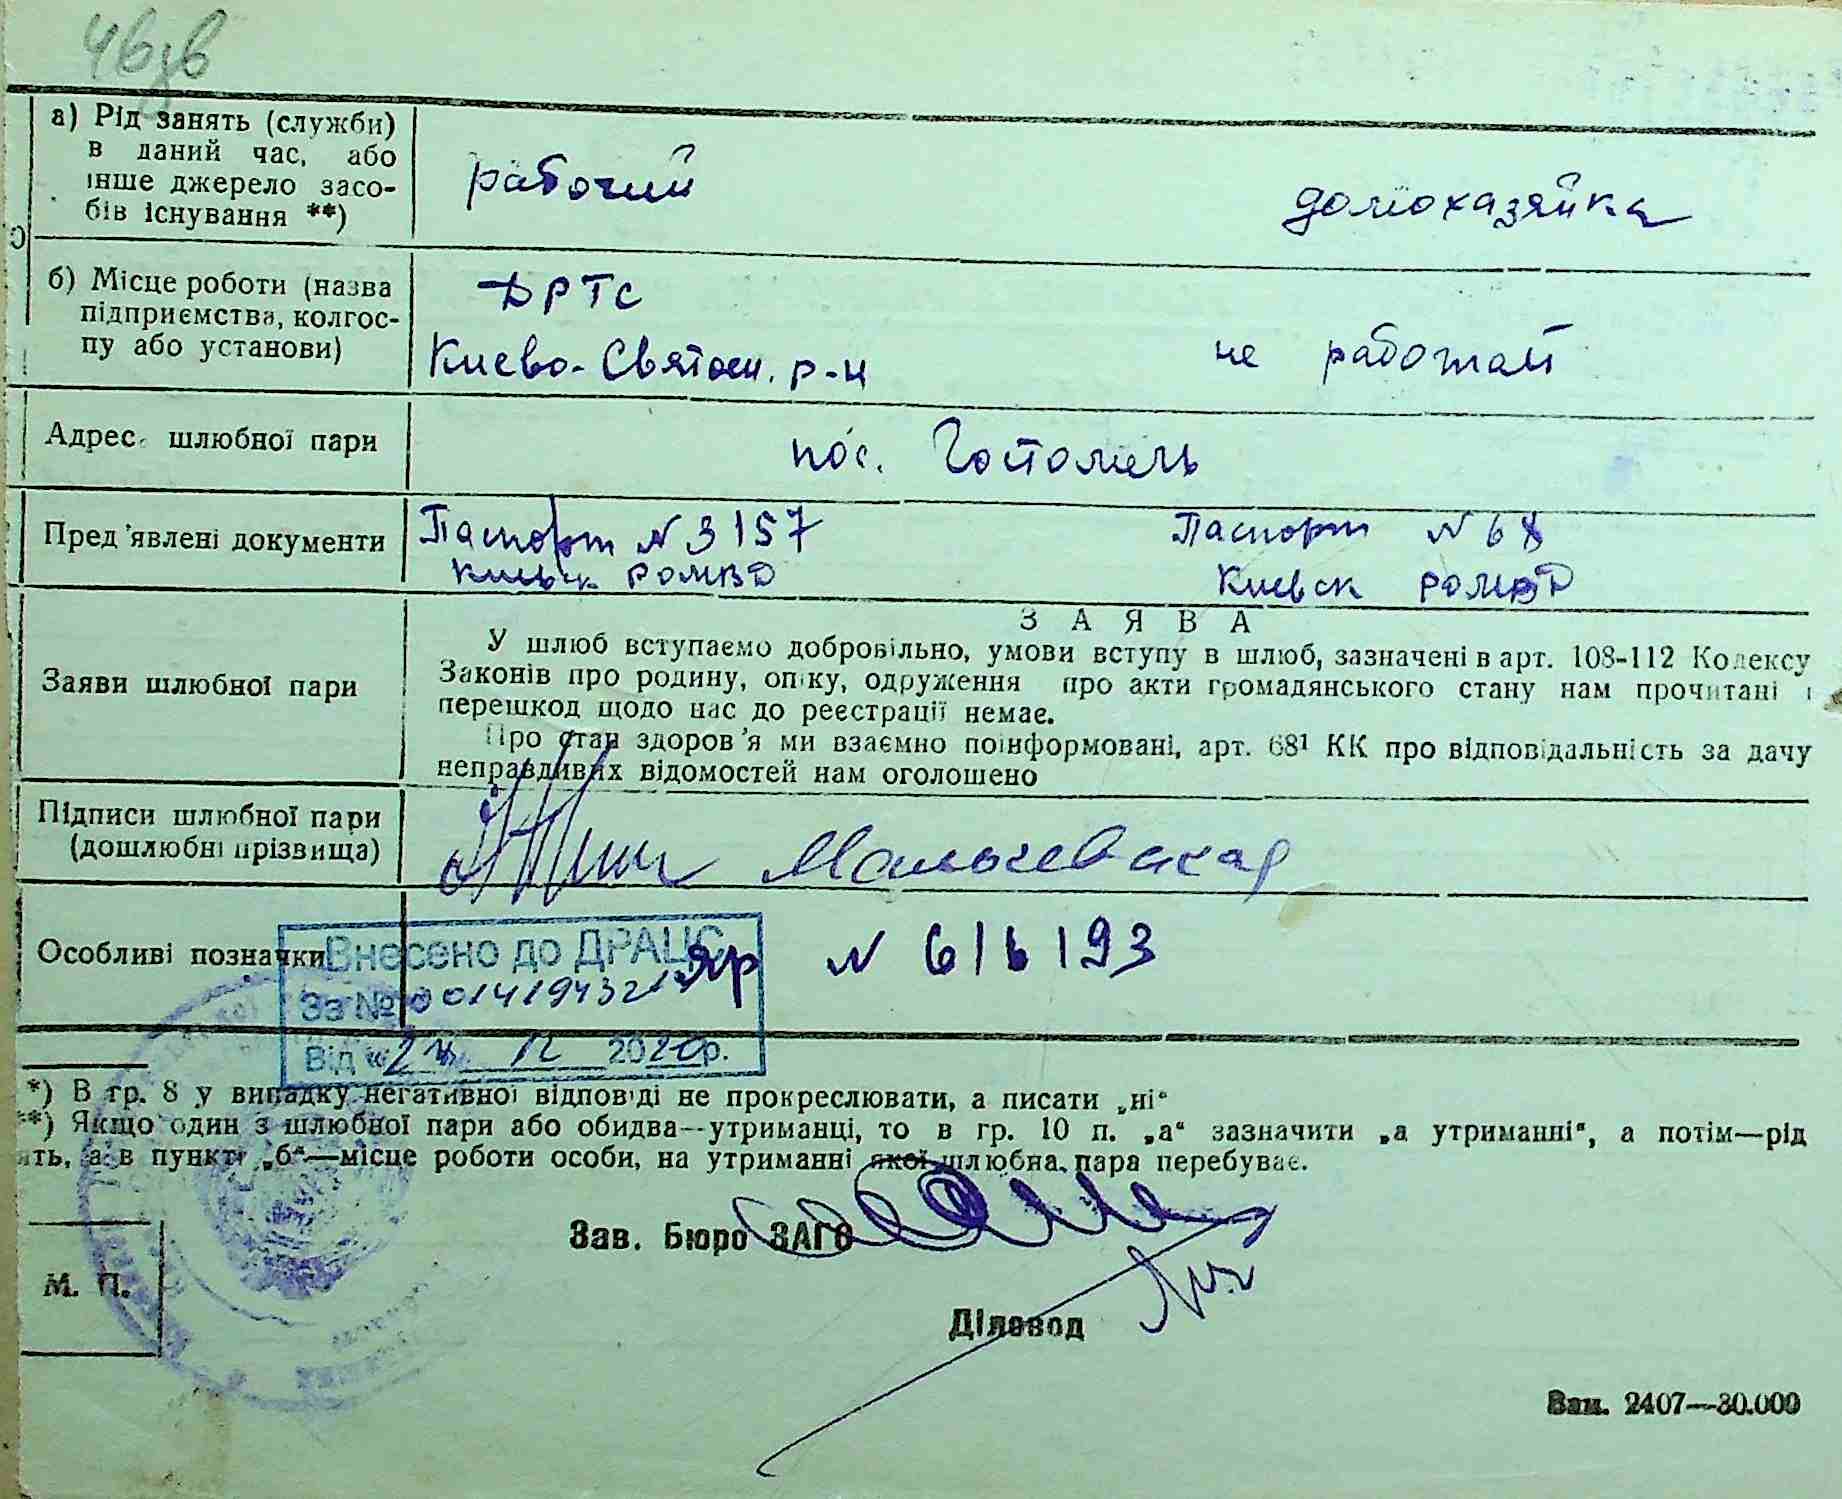 а) Рід занять (служби)
в даний час, або
інше джерело засо-
бів існування **)
рабочий
домохазяйка
б) Місце роботи (назва
підприємства, колгос-
пу або установи)
ДРТС
Киево-Святош. р-н
не работает
Адрес шлюбної пари
пос. Гостомель
Пред'явлені документи
Паспорт N 3157
Киевск РОМВД
Паспорт N 68
Киевск РОМВД
Заяви шлюбної пари
ЗАЯВА
У шлюб вступаємо добровільно, умови вступу в шлюб, зазначені в арт. 108-112 Кодексу
Законів про родину, опіку, одруження про акти громадянського стану нам прочитані і
перешкод щодо нас до реєстрації немає.
Про стан здоров'я ми взаємно поінформовані, арт. 68¹ КК про відповідальність за дачу
неправдивих відомостей нам оголошено
Підписи шлюбної пари
(дошлюбні прізвища)
Мальчевская
Особливі позначки
Внесено до ДРАЦС
За № 00141943217
Від « 24 12 2020р.
яр N 616193
*) В гр. 8 у випадку негативної відповіді не прокреслювати, а писати „ні“
**) Якщо один з шлюбної пари або обидва—утриманці, то в гр. 10 п. „а“ зазначити „а утриманні“, а потім—рід
ять, а в пункті „б“—місце роботи особи, на утриманні якої шлюбна пара перебуває.
Зав. Бюро ЗАГС
М. П.
Діловод
Зам. 2407—30.000